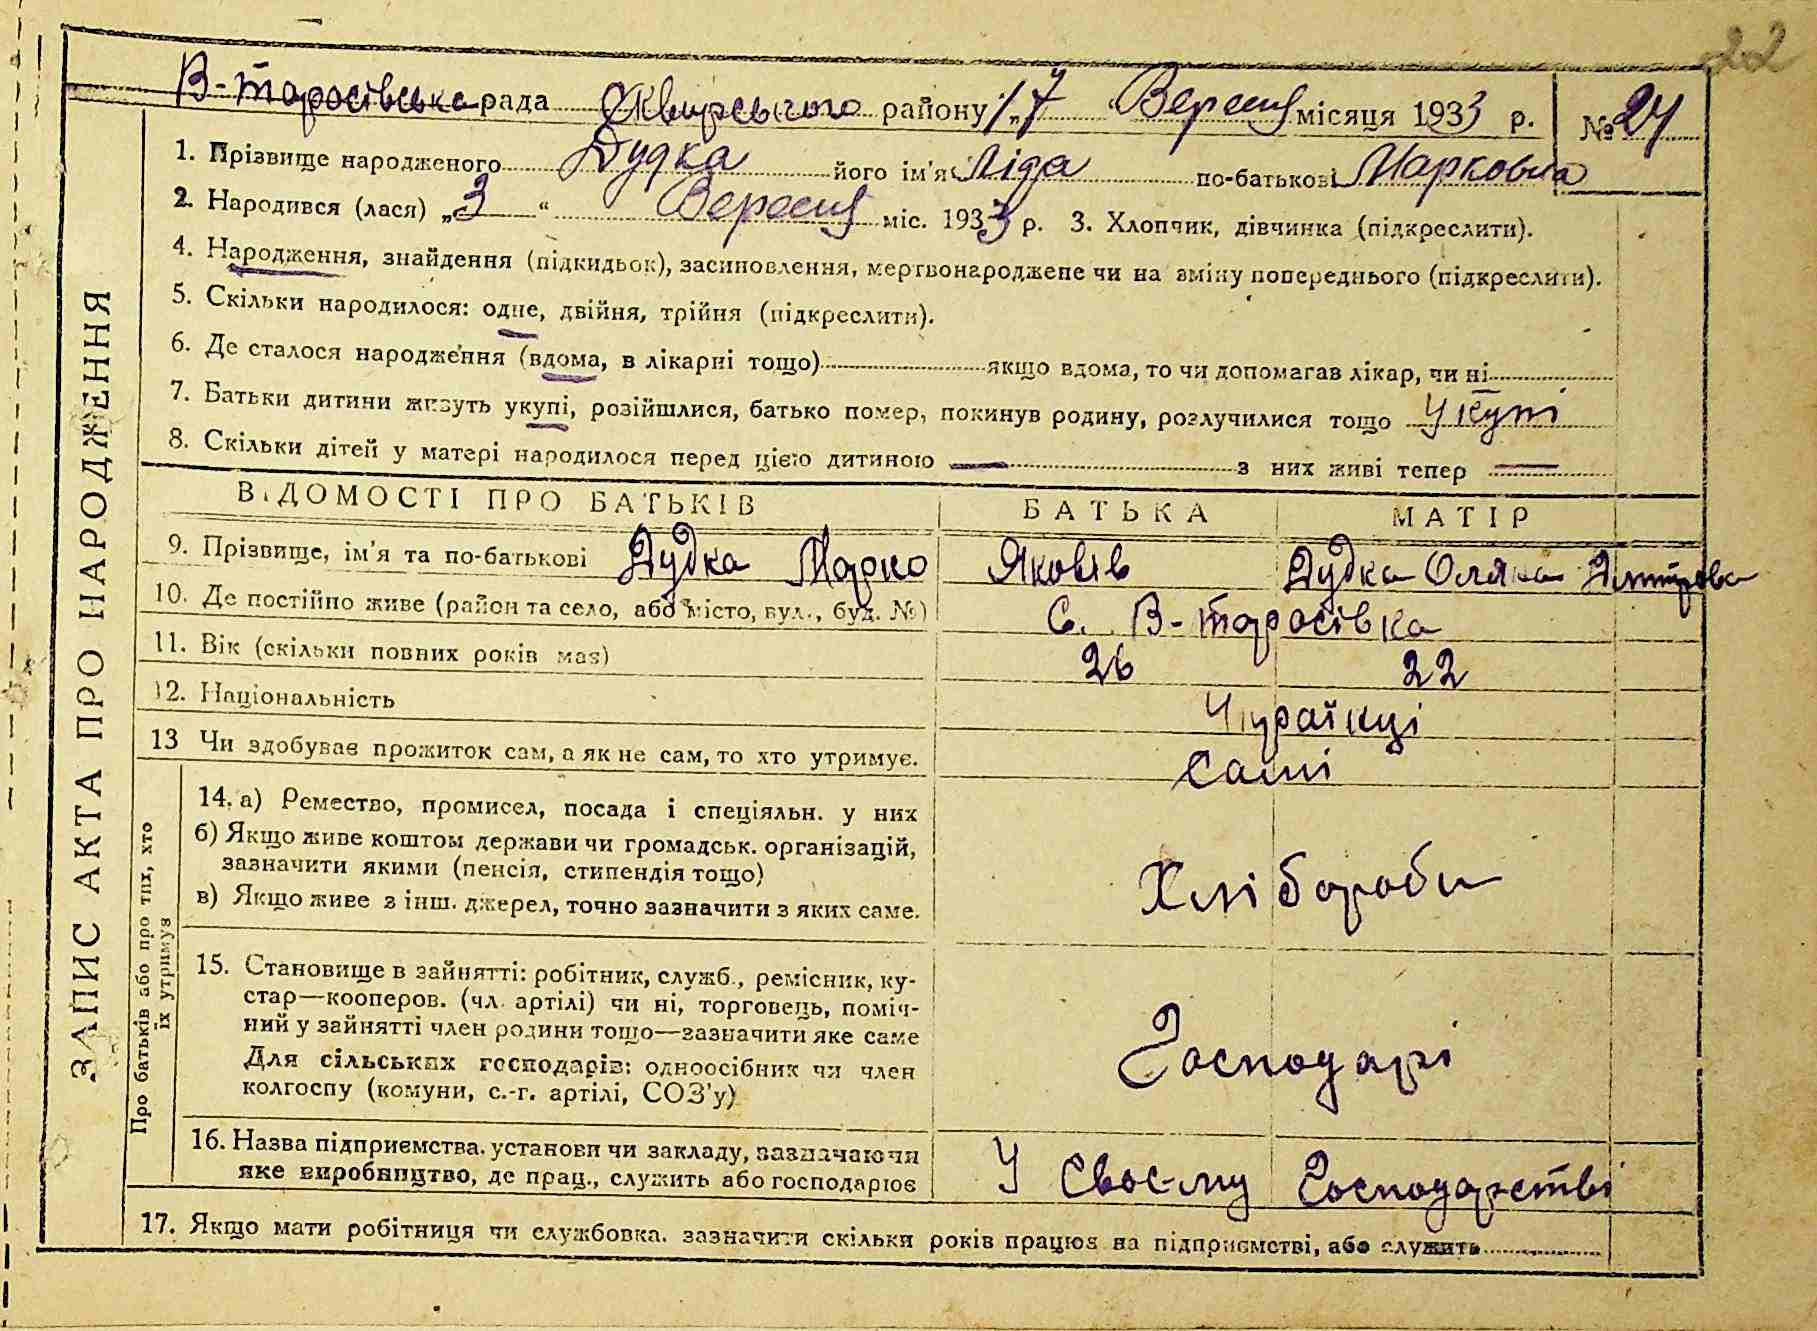 22
В-Таросівська рада Сквирського району „17 Вересня місяця 1933 р. № 24
1. Прізвище народженого Дудка його ім'я Ліда по-батькові Марковна
2. Народився (лася) „3“ Вересня міс. 1933 р. 3. Хлопчик, дівчинка (підкреслити).
4. Народження, знайдення (підкидьок), засиновлення, мертвонароджене чи на зміну попереднього (підкреслити).
5. Скільки народилося: одне, двійня, трійня (підкреслити).
6. Де сталося народження (вдома, в лікарні тощо) якщо вдома, то чи допомагав лікар, чи ні
7. Батьки дитини живуть укупі, розійшлися, батько помер, покинув родину, розлучилися тощо Укупі
8. Скільки дітей у матері народилося перед цією дитиною — з них живі тепер —
ВІДОМОСТІ ПРО БАТЬКІВ БАТЬКА МАТІР
9. Прізвище, ім'я та по-батькові Дудка Марко Яковів Дудка Оляна Дмитрова
10. Де постійно живе (район та село, або місто, вул., буд. №) с. В-Таросівка
11. Вік (скільки повних років має) 26 22
12. Національність Українці
13 Чи здобуває прожиток сам, а як не сам, то хто утримує. Самі
14. а) Ремество, промисел, посада і спеціяльн. у них
б) Якщо живе коштом держави чи громадськ. організацій,
зазначити якими (пенсія, стипендія тощо)
в) Якщо живе з інш. джерел, точно зазначити з яких саме.
Хлібороби
15. Становище в зайнятті: робітник, служб., ремісник, ку-
стар—кооперов. (чл. артілі) чи ні, торговець, поміч-
ний у зайнятті член родини тощо—зазначити яке саме
Для сільських господарів: одноосібник чи член
колгоспу (комуни, с.-г. артілі, СОЗ'у)
Господарі
16. Назва підприємства, установи чи закладу, зазначаючи
яке виробництво, де прац., служить або господарює
У своє-му Господарстві
17. Якщо мати робітниця чи службовка, зазначити скільки років працює на підприємстві, або служить
ЗАПИС АКТА ПРО НАРОДЖЕННЯ
Про батьків або про тих, хто
їх утримує